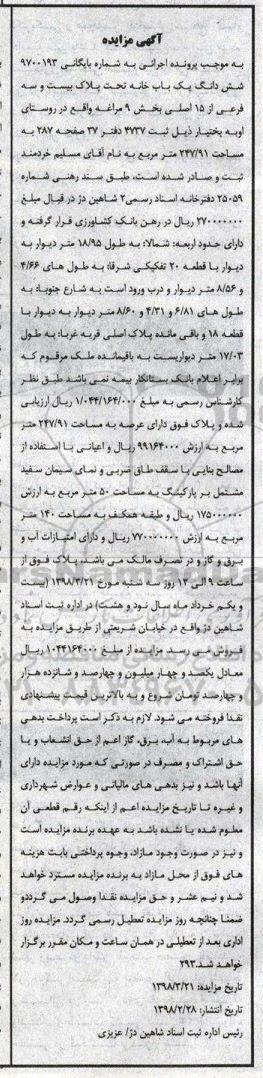 آگهی مزایده
به موجب پرونده اجرائی به شماره بایگانی ۹۷۰۰۱۹۳
شش دانگ یک باب خانه تحت پلاک بیست و سه
فرعی از ۱۵ اصلی بخش ۹ مراغه واقع در روستای
اوبه بختیار ذیل ثبت ۴۷۳۷ دفتر ۳۷ صفحه ۲۸۷ به
مساحت ۲۴۷/۹۱ متر مربع به نام آقای مسلیم خردمند
ثبت و صادر شده است، طبق سند رهنی شماره
۲۵۰۵۹ دفترخانه اسناد رسمی۲ شاهین دژ در قبال مبلغ
۲۷۰۰۰۰۰۰۰ ریال در رهن بانک کشاورزی قرار گرفته و
دارای حدود اربعه: شمالا: به طول ۱۸/۹۵ متر دیوار به
دیوار با قطعه ۲۰ تفکیکی شرقا: به طول های ۴/۶۶
و ۸/۵۶ متر دیوار و درب ورود است به شارع جنوبا: به
طول های ۶/۸۱ و ۴/۳۱ و ۸/۶۰متر دیوار به دیوار با
قطعه ۱۸ و باقی مانده پلاک اصلی قریه غربا: به طول
۱۷/۰۳ متر دیواریست به باقیمانده ملک مرقوم که
برابر اعلام بانک بستانکار بیمه نمی باشد طبق نظر
کارشناس رسمی به مبلغ ۱/۰۴۴/۱۶۴/۰۰۰ ریال ارزیابی
شده و پلاک فوق دارای عرصه به مساحت ۲۴۷/۹۱ متر
مربع به ارزش ۹۹۱۶۴۰۰۰ ریال و اعیانی با استفاده از
مصالح بنایی با سقف طاق ضربی و نمای سیمان سفید
مشتمل بر پارکینگ به مساحت ۵۰ متر مربع به ارزش
۱۷۵۰۰۰۰۰۰ ریال و طبقه همکف به مساحت ۱۴۰ متر
مربع به ارزش ۷۷۰۰۰۰۰۰۰ ریال و دارای امتیازات آب و
برق و گاز و در تصرف مالک می باشد، پلاک فوق از
ساعت ۹ الی ۱۲ روز سه شنبه مورخ ۱۳۹۸/۳/۲۱ (بیست
و یکم خرداد ماه سال نود و هشت) در اداره ثبت اسناد
شاهین دژ واقع در خیابان شریعتی از طریق مزایده به
فروش می رسد. مزایده از مبلغ ۱۰۴۴۱۶۴۰۰۰ ریال
معادل یکصد و چهار میلیون و چهارصد و شانزده هزار
و چهارصد تومان شروع و به بالاترین قیمت پیشنهادی
نقدا فروخته می شود. لازم به ذکر است پرداخت بدهی
های مربوط به آب، برق، گاز اعم از حق انشعاب و یا
حق اشتراک و مصرف در صورتی که مورد مزایده دارای
آنها باشد و نیز بدهی های مالیاتی و عوارض شهرداری
و غیره تا تاریخ مزایده اعم از اینکه رقم قطعی آن
معلوم شده یا نشده باشد به عهده برنده مزایده است
و نیز در صورت وجود مازاد، وجوه پرداختی بابت هزینه
های فوق از محل مازاد به برنده مزایده مسترد خواهد
شد و نیم عشر و حق مزایده نقدا وصول می گرددو
ضمنا چنانچه روز مزایده تعطیل رسمی گردد. مزایده روز
اداری بعد از تعطیلی در همان ساعت و مکان مقرر برگزار
خواهد شد.۲۹۳
تاریخ مزایده: ۱۳۹۸/۳/۲۱
تاریخ انتشار: ۱۳۹۸/۲/۲۸
رئیس اداره ثبت اسناد شاهین دژ/ عزیزی